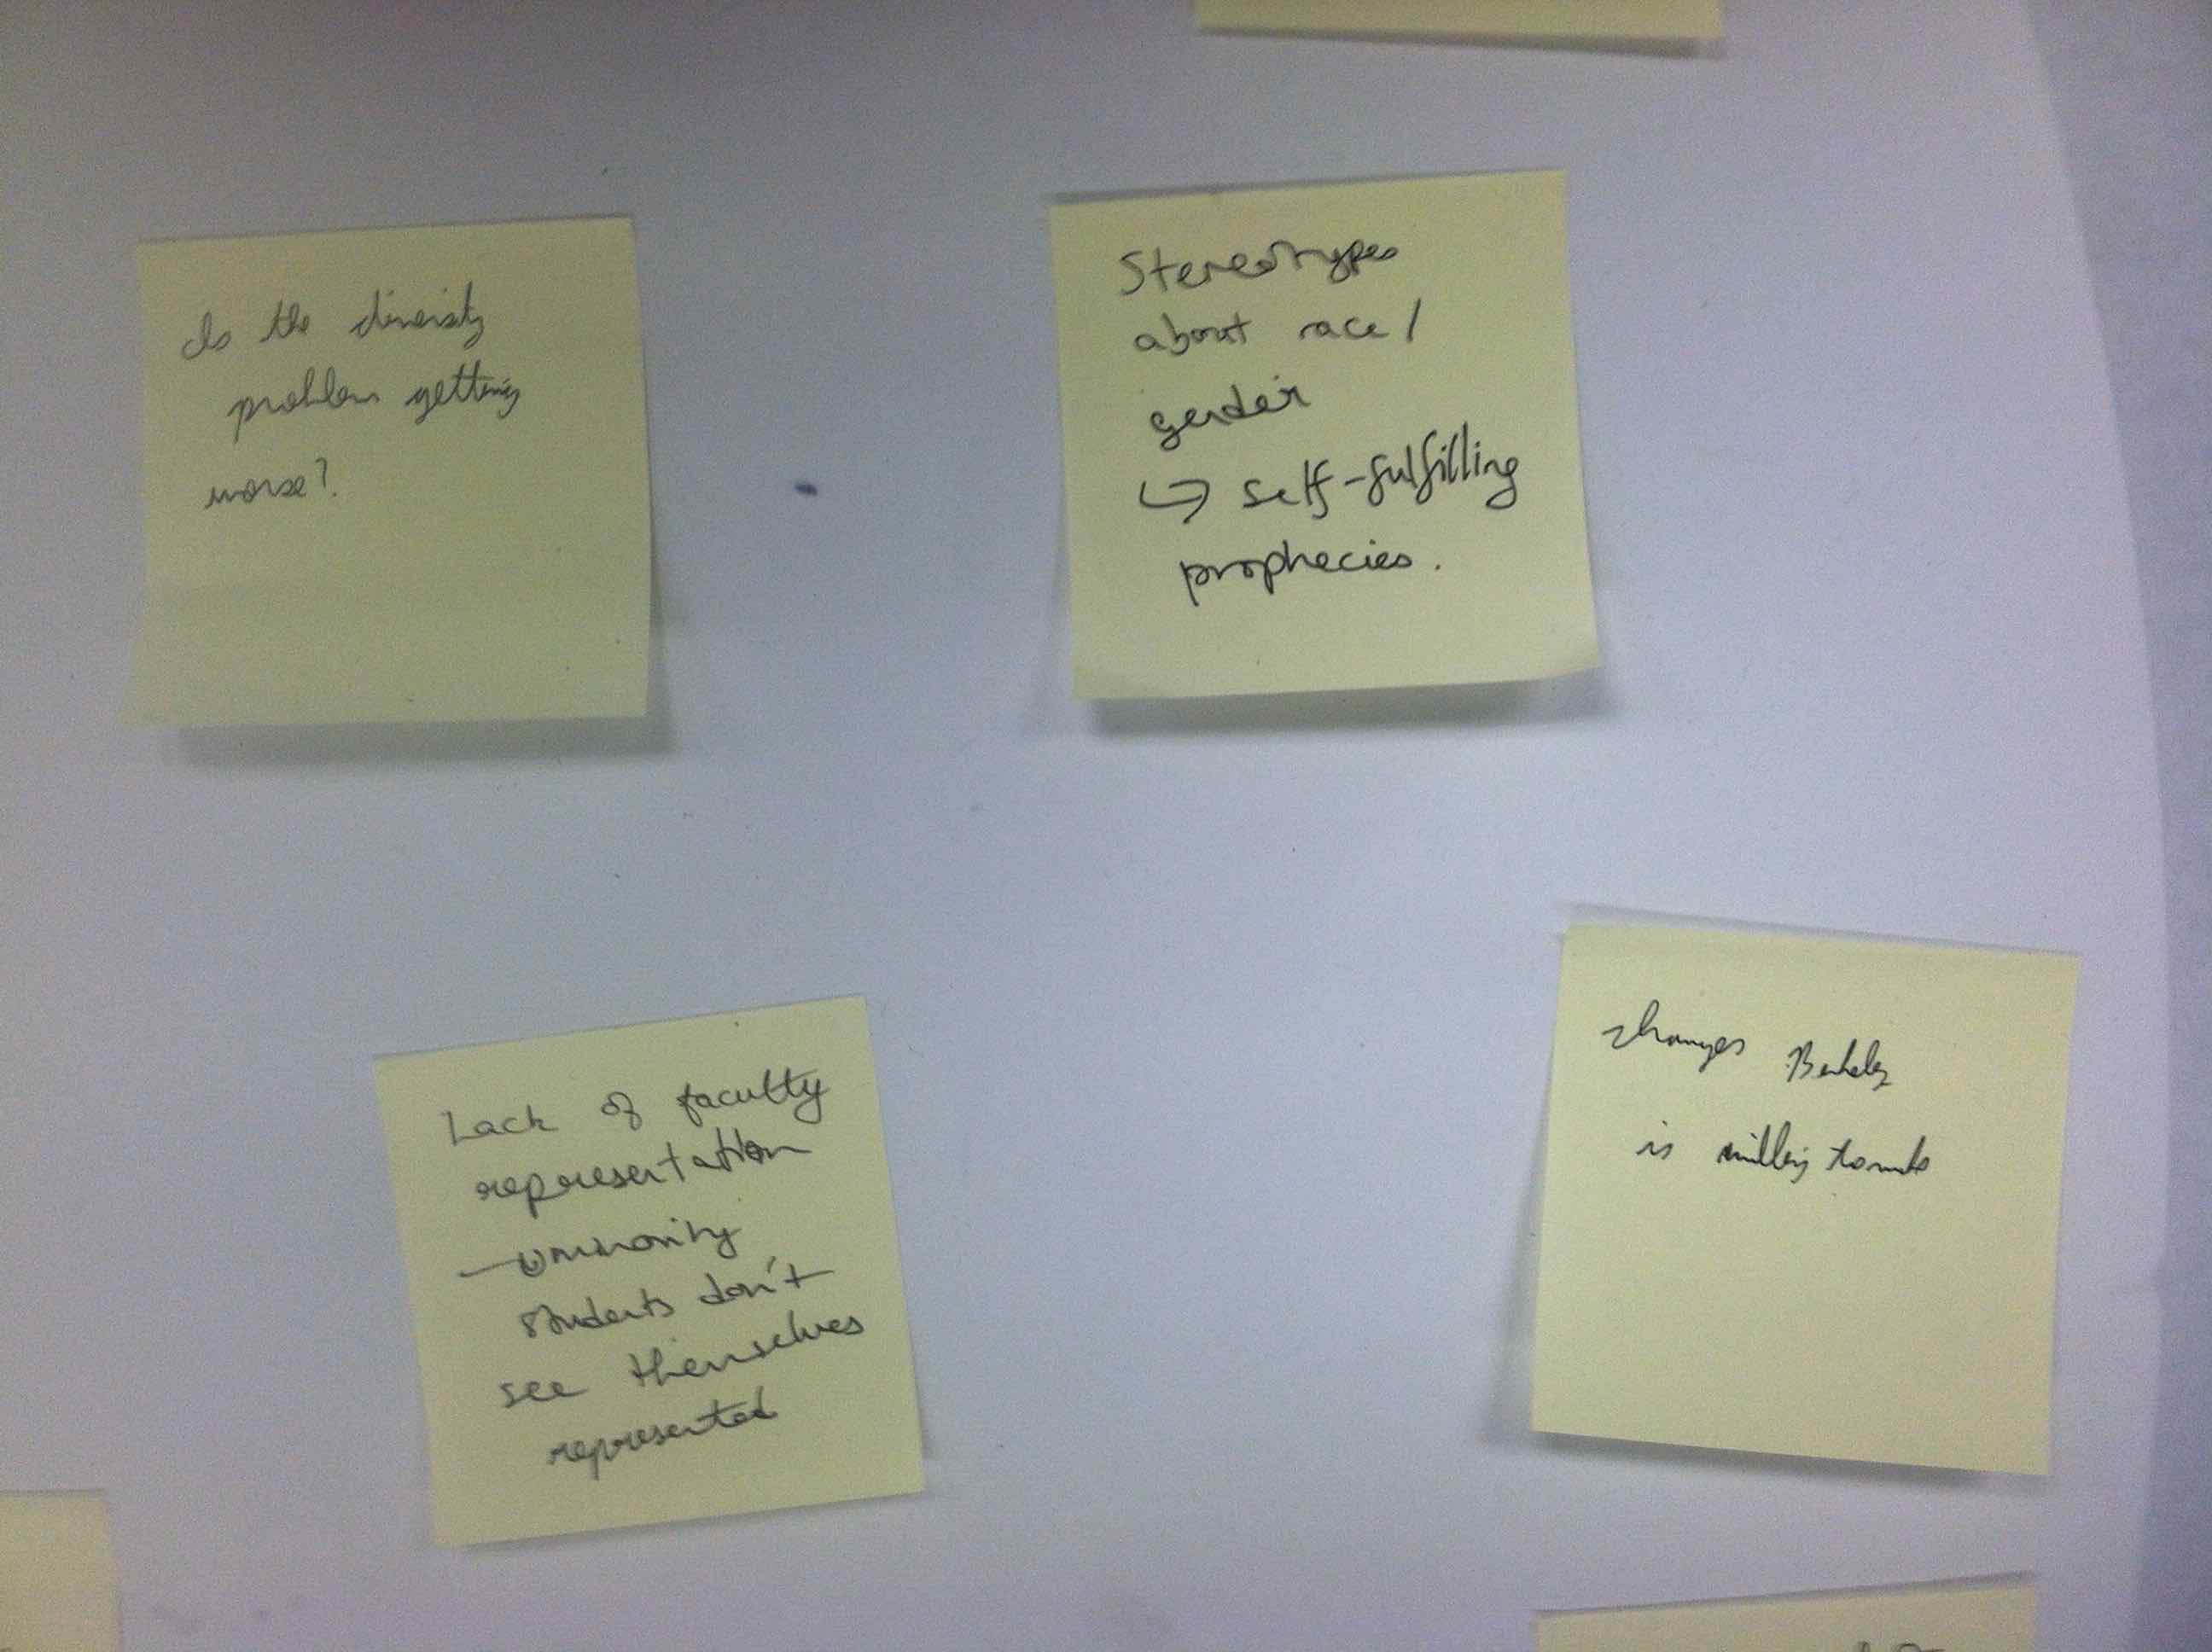 Is the diversity
problem getting
worse?
Stereotypes
about race/
gender
↳ self-fulfilling
prophecies.
Lack of faculty
representation
minority
students don't
see themselves
represented
changes Berkeley
is willing to make